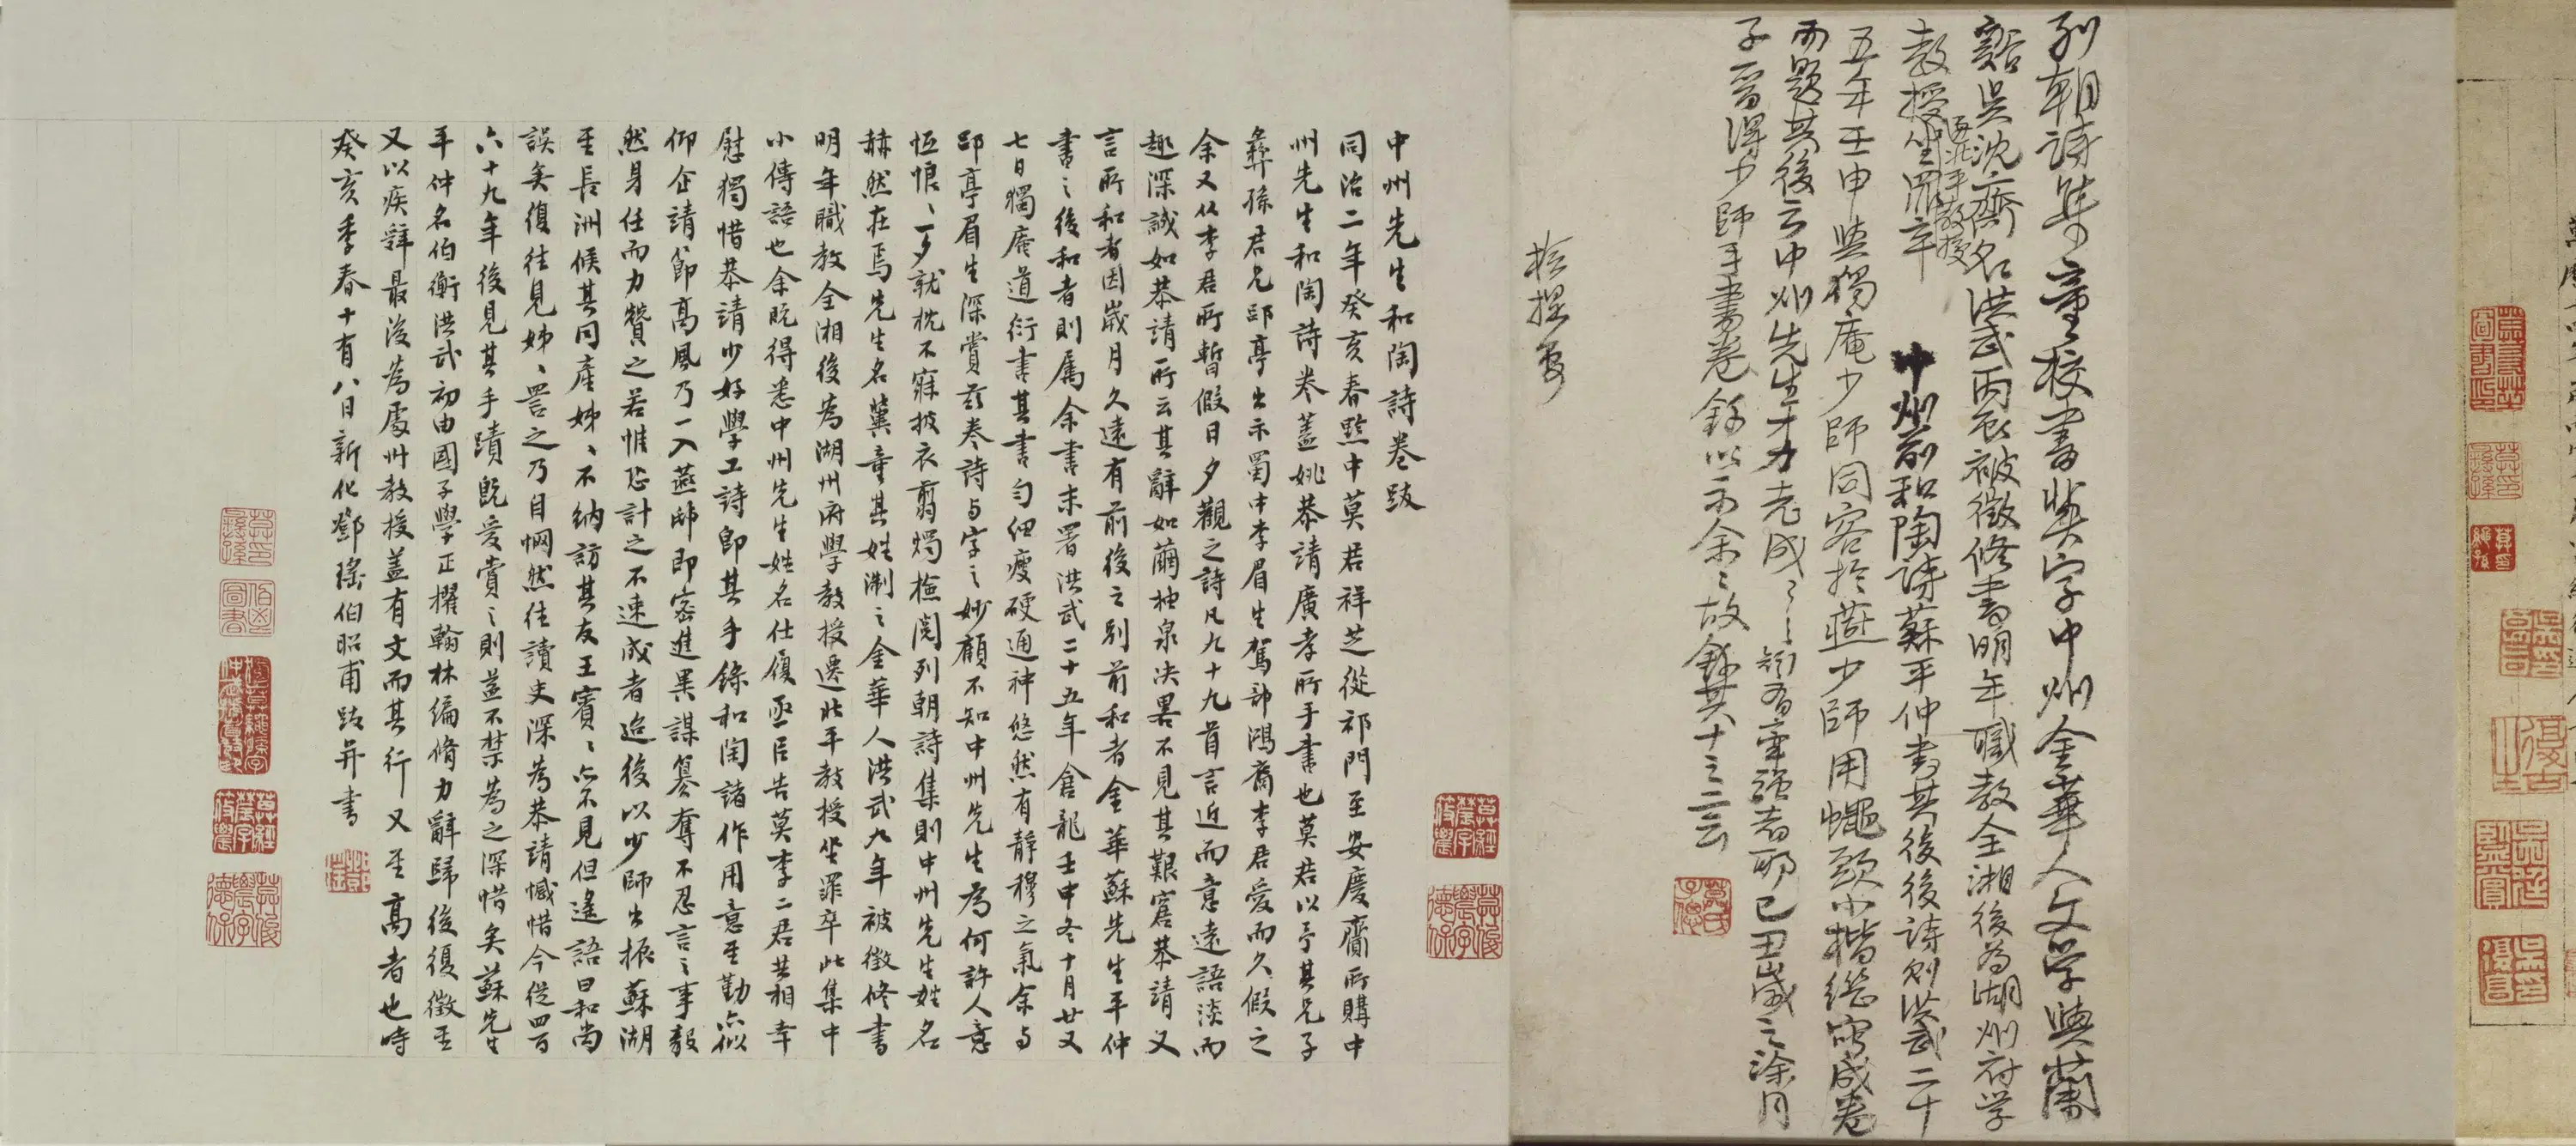 列朝詩集童校書冀字中州金華人文学與蕭
谿吳沈齊名洪武丙辰被徵修書明年職教全湘後為湖州府学
教授坐罪卒
遷北平教授
中州前和陶詩蘇平仲書其後後詩則洪武二十
五年壬申與獨庵少師同客於燕少師用蠅頭小楷繕寫成卷
而題其後云中州先生才力老成
己丑歲之涂月
子晉得少師手書卷録以示余余故録其十之二云
中州先生和陶詩卷跋
同治二年癸亥春黔中莫君祥芝從祁門至安慶齎所購中
州先生和陶詩卷蓋姚恭靖廣孝所手書也莫君以予其兄子
彝孫君兄郘亭出示蜀中李眉生駕部鴻裔李君愛而久假之
余又從李君所暫假日夕觀之詩凡九十九首言近而意遠語淡而
趣深誠如恭靖所云其辭如繭抽泉决畧不見其艱窘恭靖又
言所和者因歲月久遠有前後之別前和者金華蘇先生平仲
書之後和者則屬余書末署洪武二十五年倉龍壬申冬十月廿又
七日獨庵道衍書其書勻細瘦硬通神悠然有靜穆之氣余与
郘亭眉生深賞茲卷詩与字之妙顧不知中州先生為何許人意
恆悢〻一夕就枕不寐披衣翦燭檢閱列朝詩集則中州先生姓名
赫然在焉先生名冀童其姓淛之金華人洪武九年被徵修書
明年職教全湘後為湖州府學教授遷北平教授坐罪卒此集中
小傳語也余既得悉中州先生姓名仕履亟以告莫李二君共相幸
慰獨惜恭靖少好學工詩即其手錄和陶諸作用意至勤亦似
仰企靖節高風乃一入燕邸即密進異謀篡奪不忍言之事毅
然身任而力贊之若惟恐計之不速成者迨後以少師出振蘇湖
至長洲候其同產姊〻不納訪其友王賓〻亦不見但遙語曰和尚
誤矣復往見姊〻詈之乃自惘然往讀史深為恭靖憾惜今從四百
六十九年後見其手蹟既愛賞之則益不禁為之深惜矣蘇先生
平仲名伯衡洪武初由國子學正擢翰林編脩力辭歸後復徵至
又以疾辭最後為處州教授蓋有文而其行又至高者也時
癸亥季春十有八日新化鄧瑤伯昭甫跋并書